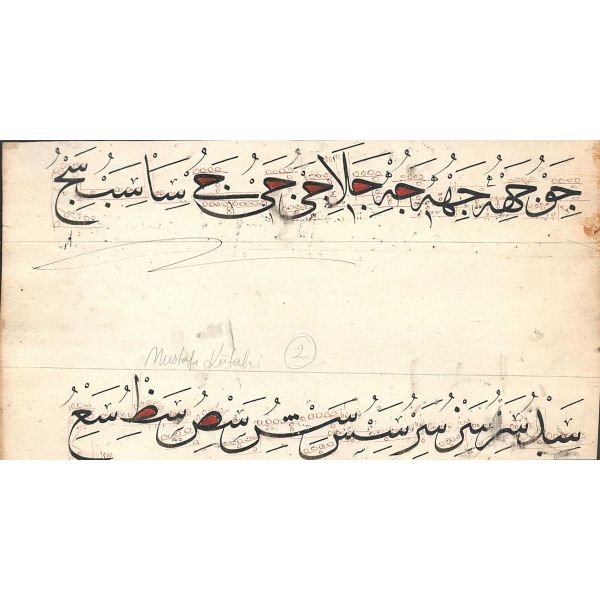 جو جهه جهه جه جلا جى جى سا سب سج
Mustafa Kütahi 2
سد سر سر سر سس سص سط سع